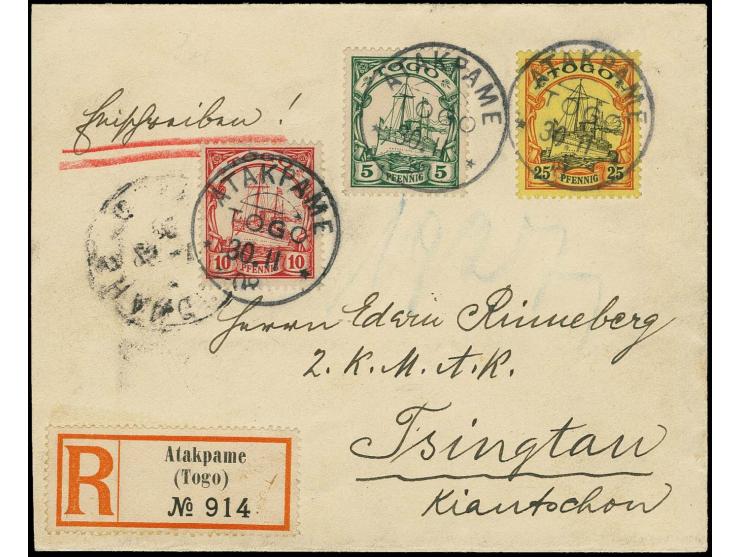 TOGO
5 PFENNIG 5
ATAKPAME
TOGO
30.11
TOGO
25 PFENNIG 25
ATAKPAME
TOGO
30.11
Einschreiben!
TOGO
10 PFENNIG 10
ATAKPAME
TOGO
30.11
08
Herrn Edwin Rinneberg
2. K. M. A. K.
Tsingtau
Kiautschou
R
Atakpame
(Togo)
№ 914